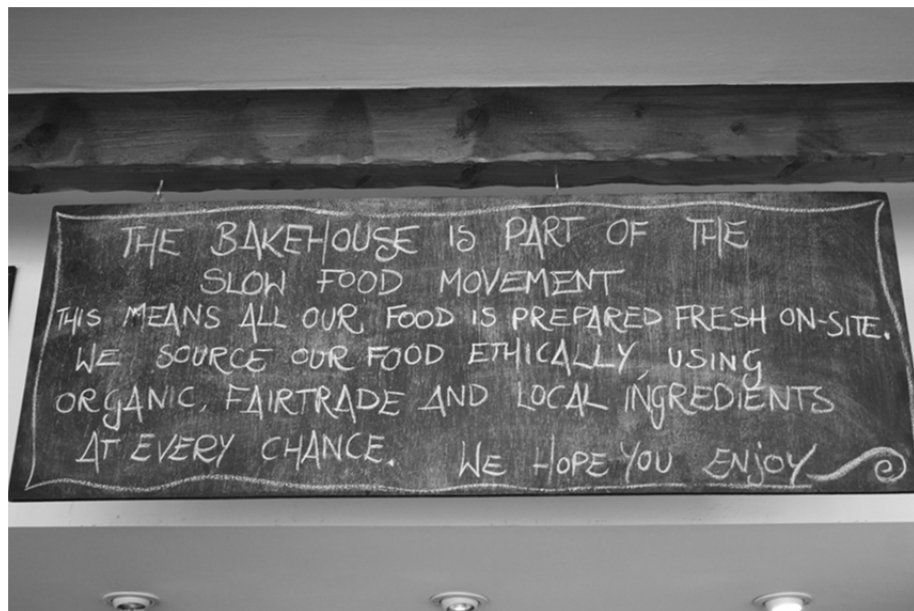 THE BAKEHOUSE IS PART OF THE
SLOW FOOD MOVEMENT
THIS MEANS ALL OUR FOOD IS PREPARED FRESH ON-SITE.
WE SOURCE OUR FOOD ETHICALLY, USING
ORGANIC, FAIRTRADE AND LOCAL INGREDIENTS
AT EVERY CHANCE. WE HOPE YOU ENJOY